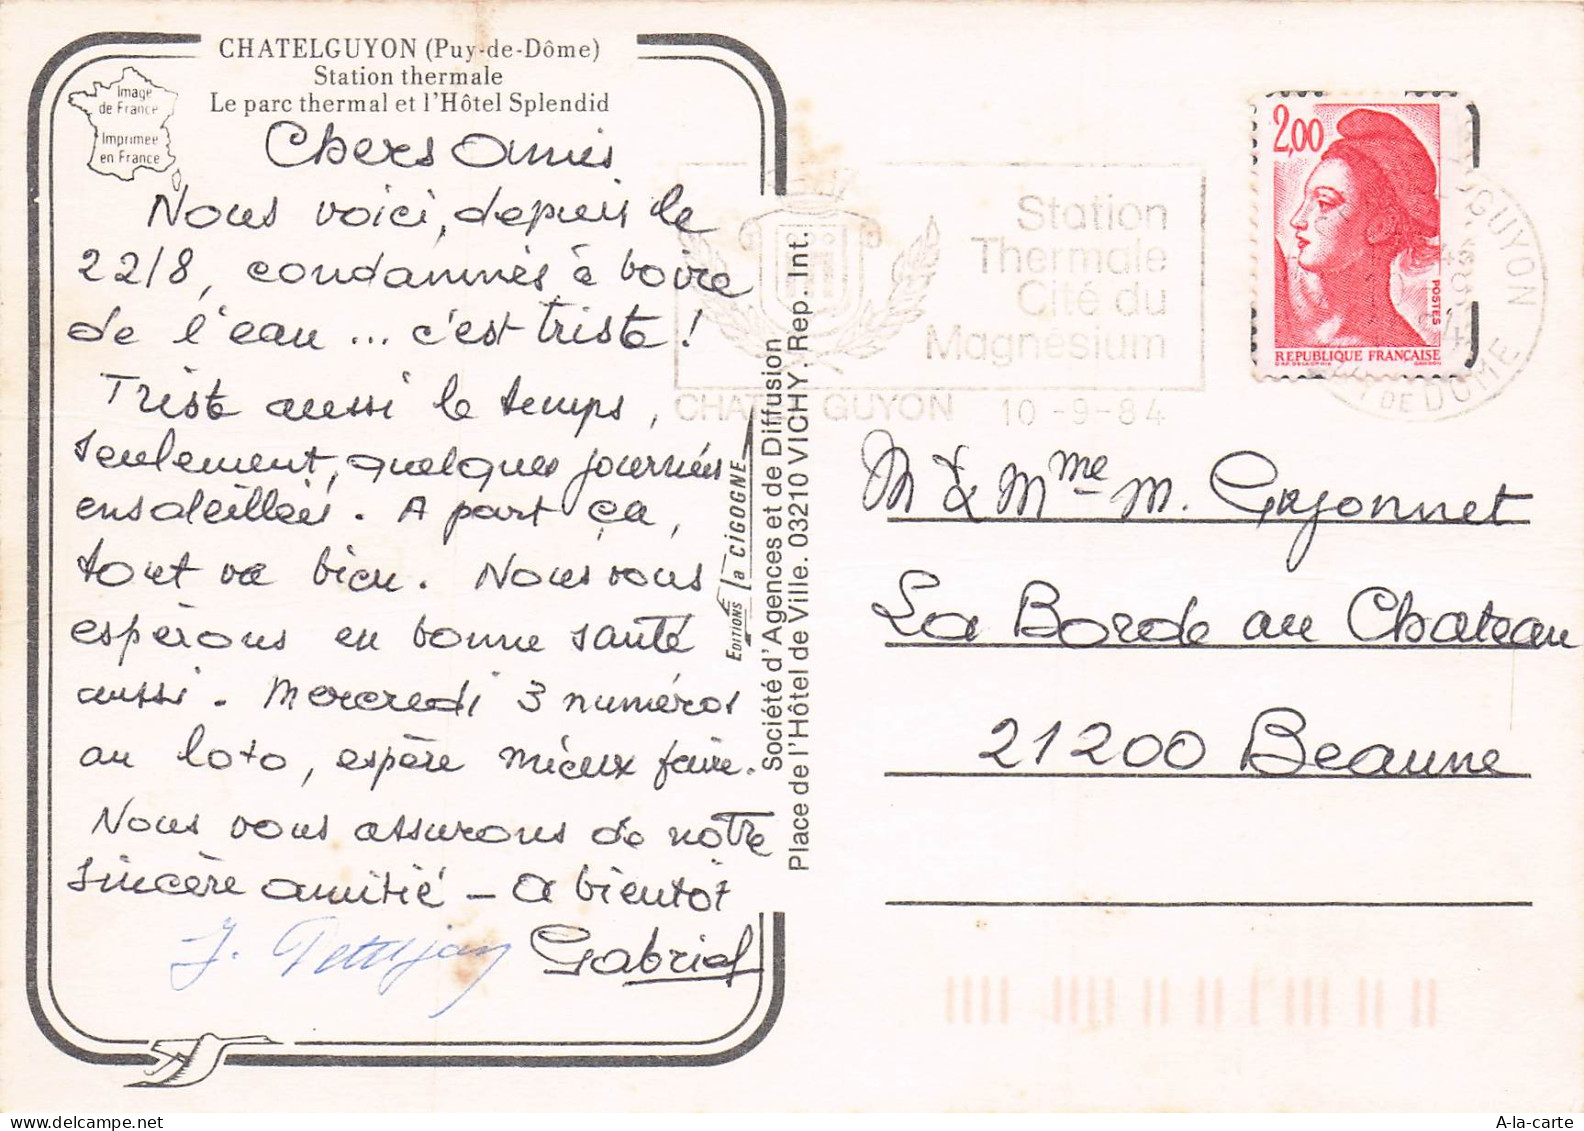 CHATELGUYON (Puy-de-Dôme)
Station thermale
Le parc thermal et l'Hôtel Splendid
Image
de France
Imprimée
en France
Chers Amis
Nous voici, depuis le
22/8, condamnés à boire
de l'eau ... c'est triste !
Triste aussi le temps,
seulement, quelques journées
ensoleillées. A part ça,
tout va bien. Nous vous
espérons en bonne santé
aussi. Mercredi 3 numéros
au loto, espère mieux faire.
Nous vous assurons de notre
sincère amitié - A bientôt
J. Petitjean Gabriel
EDITIONS la CIGOGNE
Société d'Agences et de Diffusion
Place de l'Hôtel de Ville. 03210 VICHY. Rep. Int.
Station
Thermale
Cité du
Magnésium
CHATEL GUYON 10-9-84
GUYON
PUY DE DOME
2,00
POSTES
REPUBLIQUE FRANÇAISE
M & Mme M. Guyonnet
La Borde au Chateau
21200 Beaune
A-la-carte